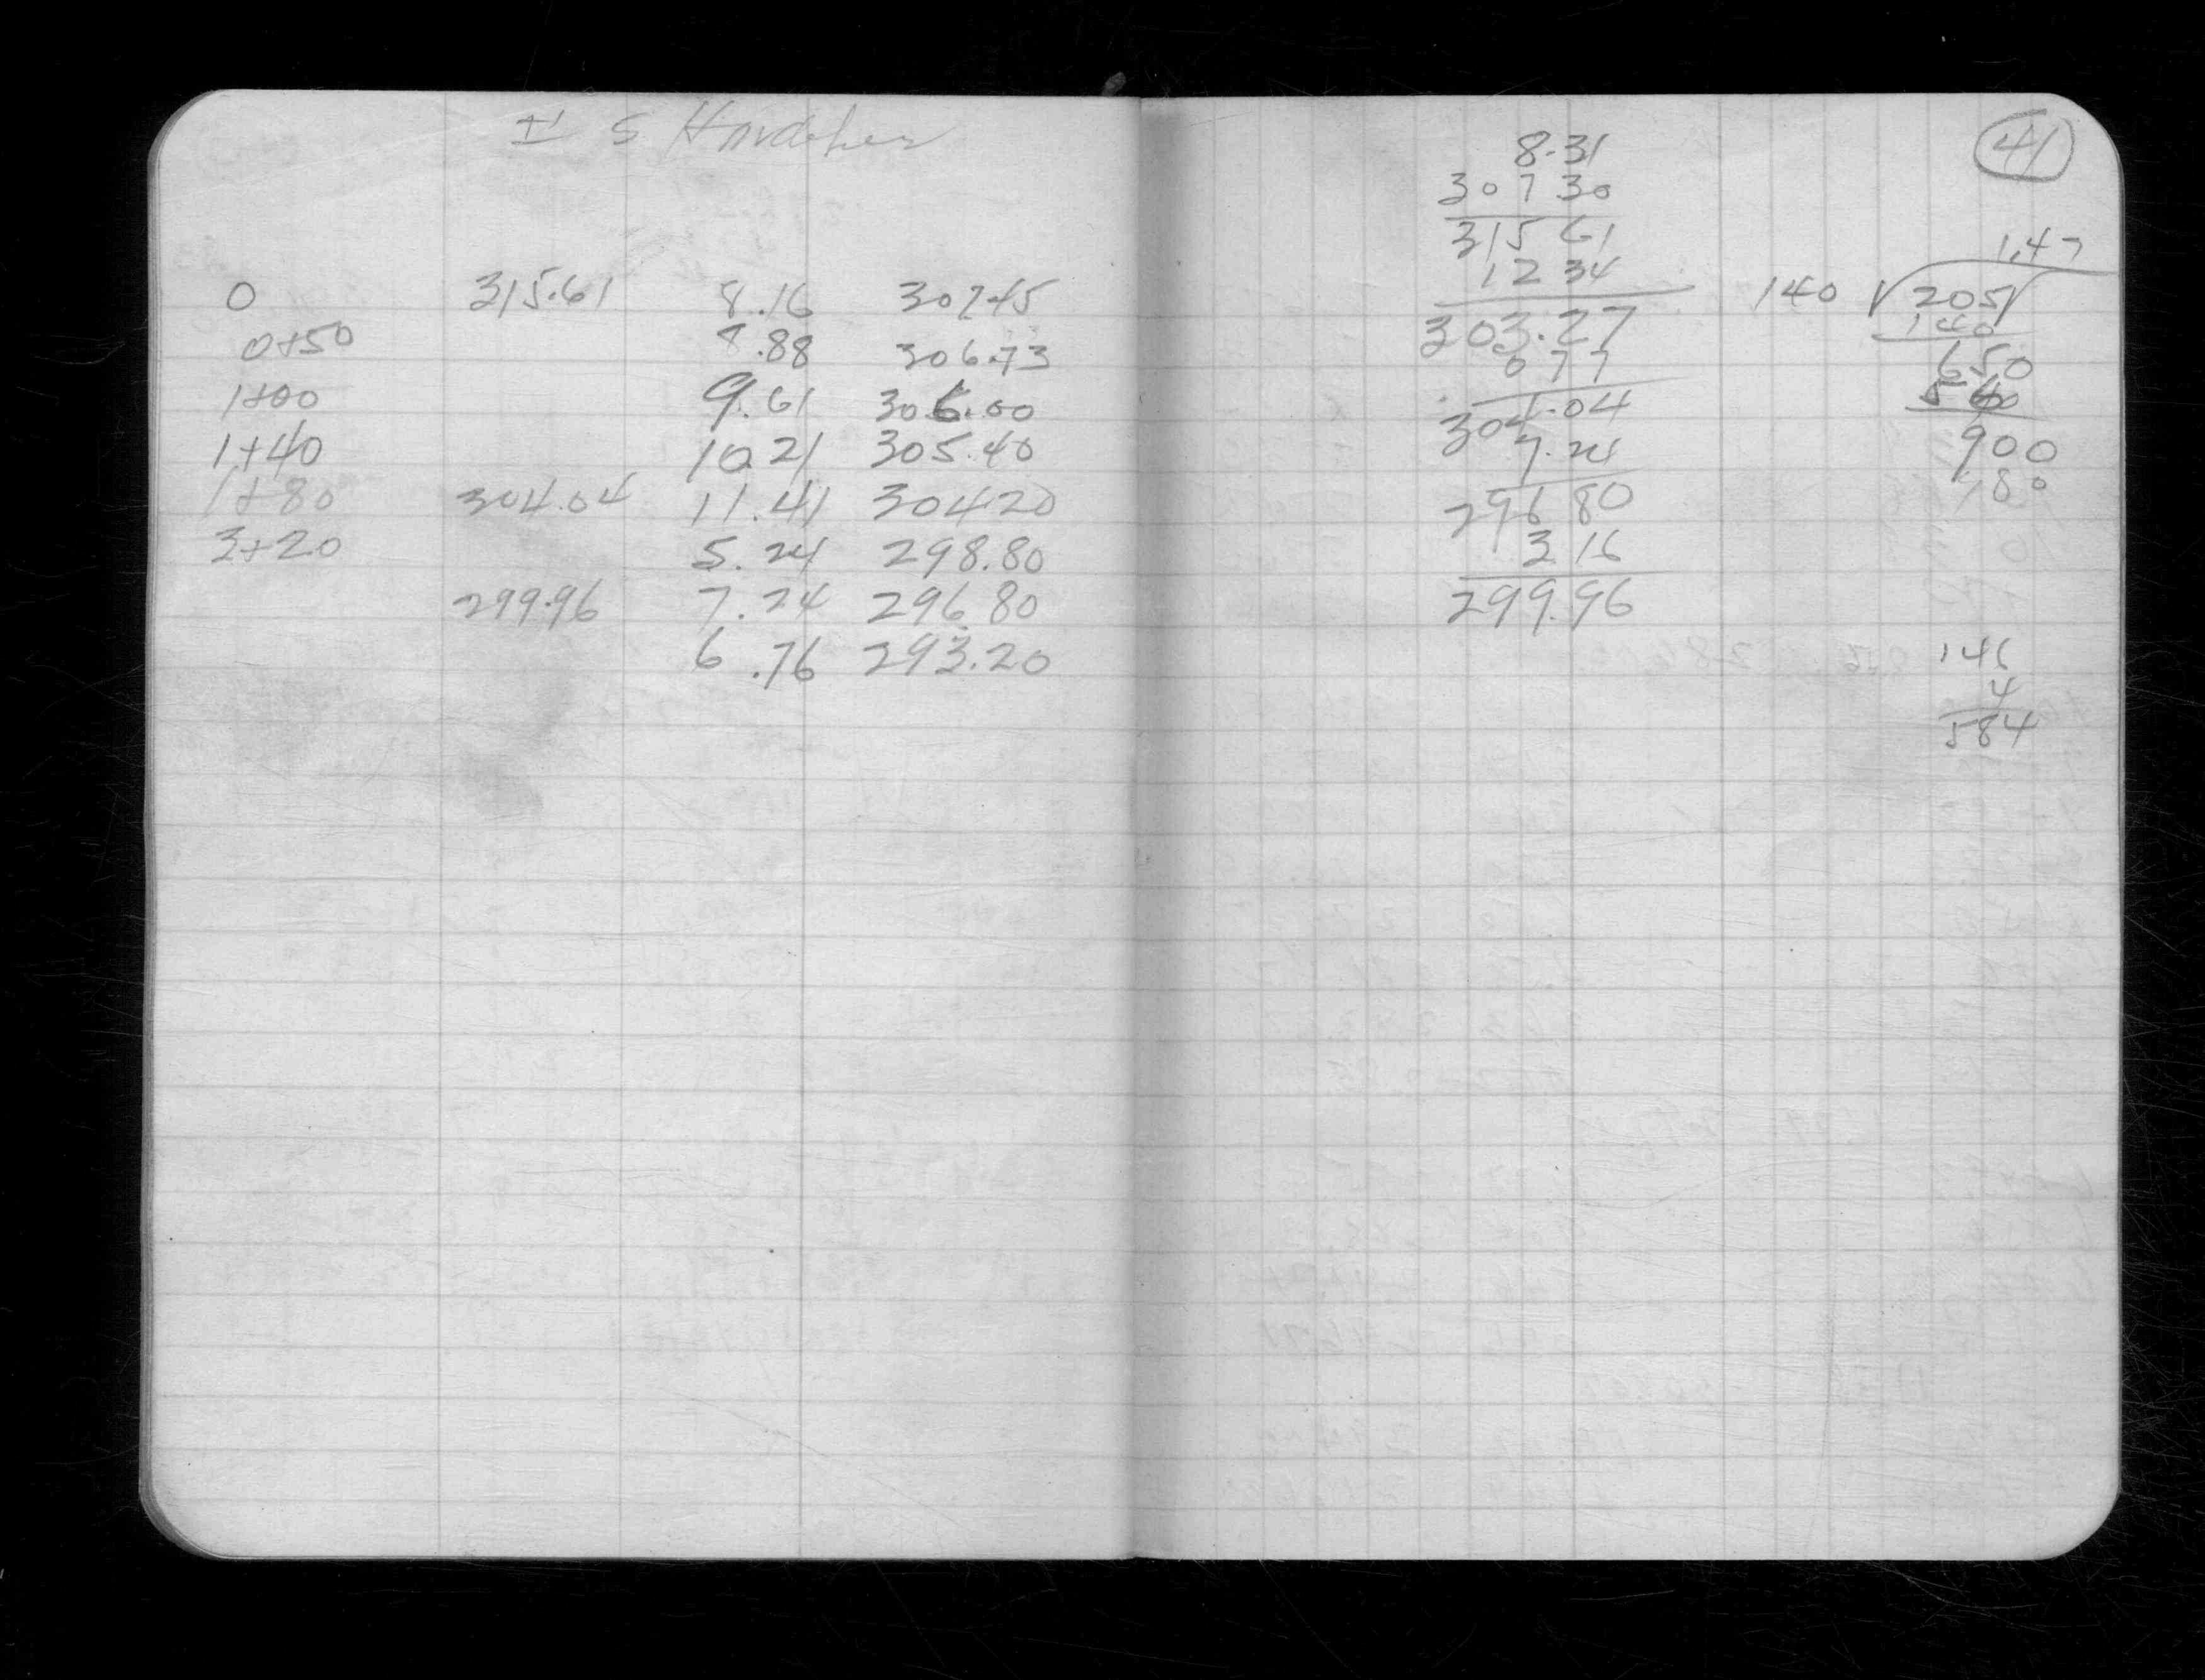 0 315.61 8.16 307.45
0+50 8.88 306.73
1+00 9.61 306.00
1+40 10.21 305.40
1+80 304.04 11.41 304 20
3+20 5.24 298.80
299.96 7.24 296.80
6.76 293.20
41
8.31
307 30
315 61
12 34
303.27
0 77
304.04
7.24
296 80
3 16
299.96
1.47
140 205
140
650
560
900
180
146
4
584